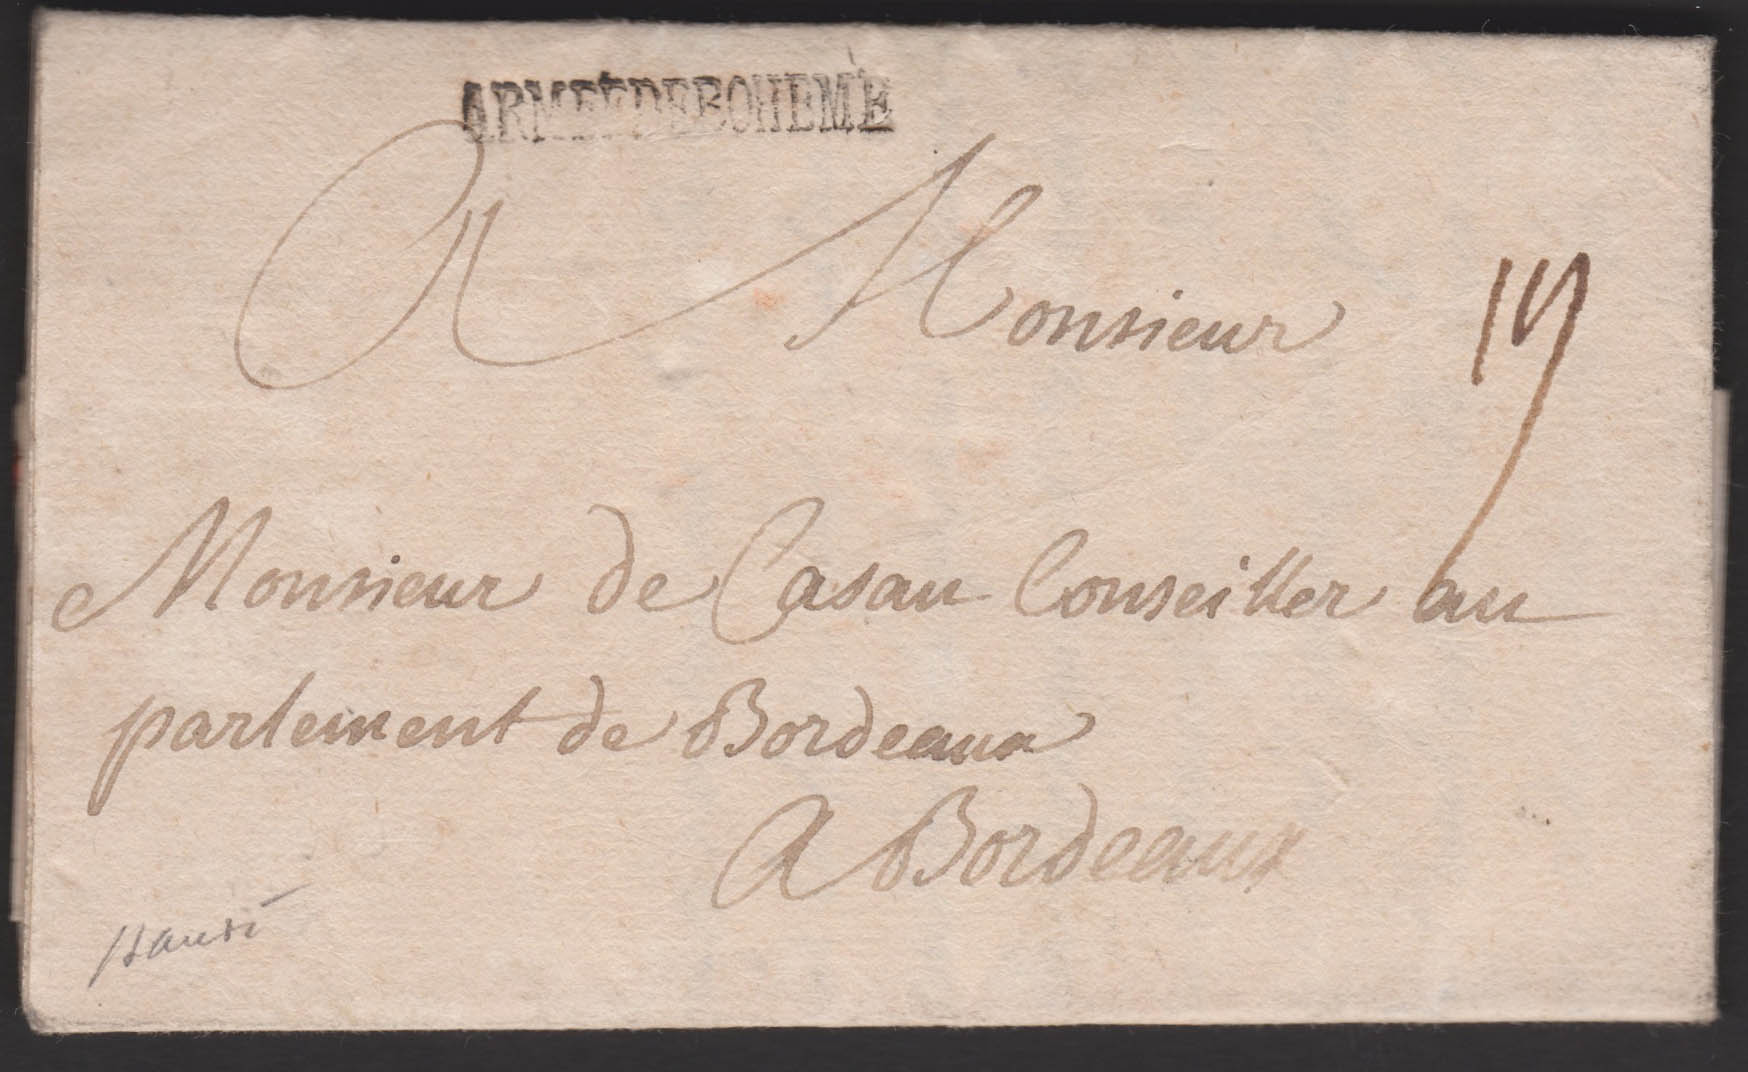 ARMÉE DE BOHEME
A Monsieur
19
Monsieur de Casau Conseiller au
parlement de Bordeaux
A Bordeaux